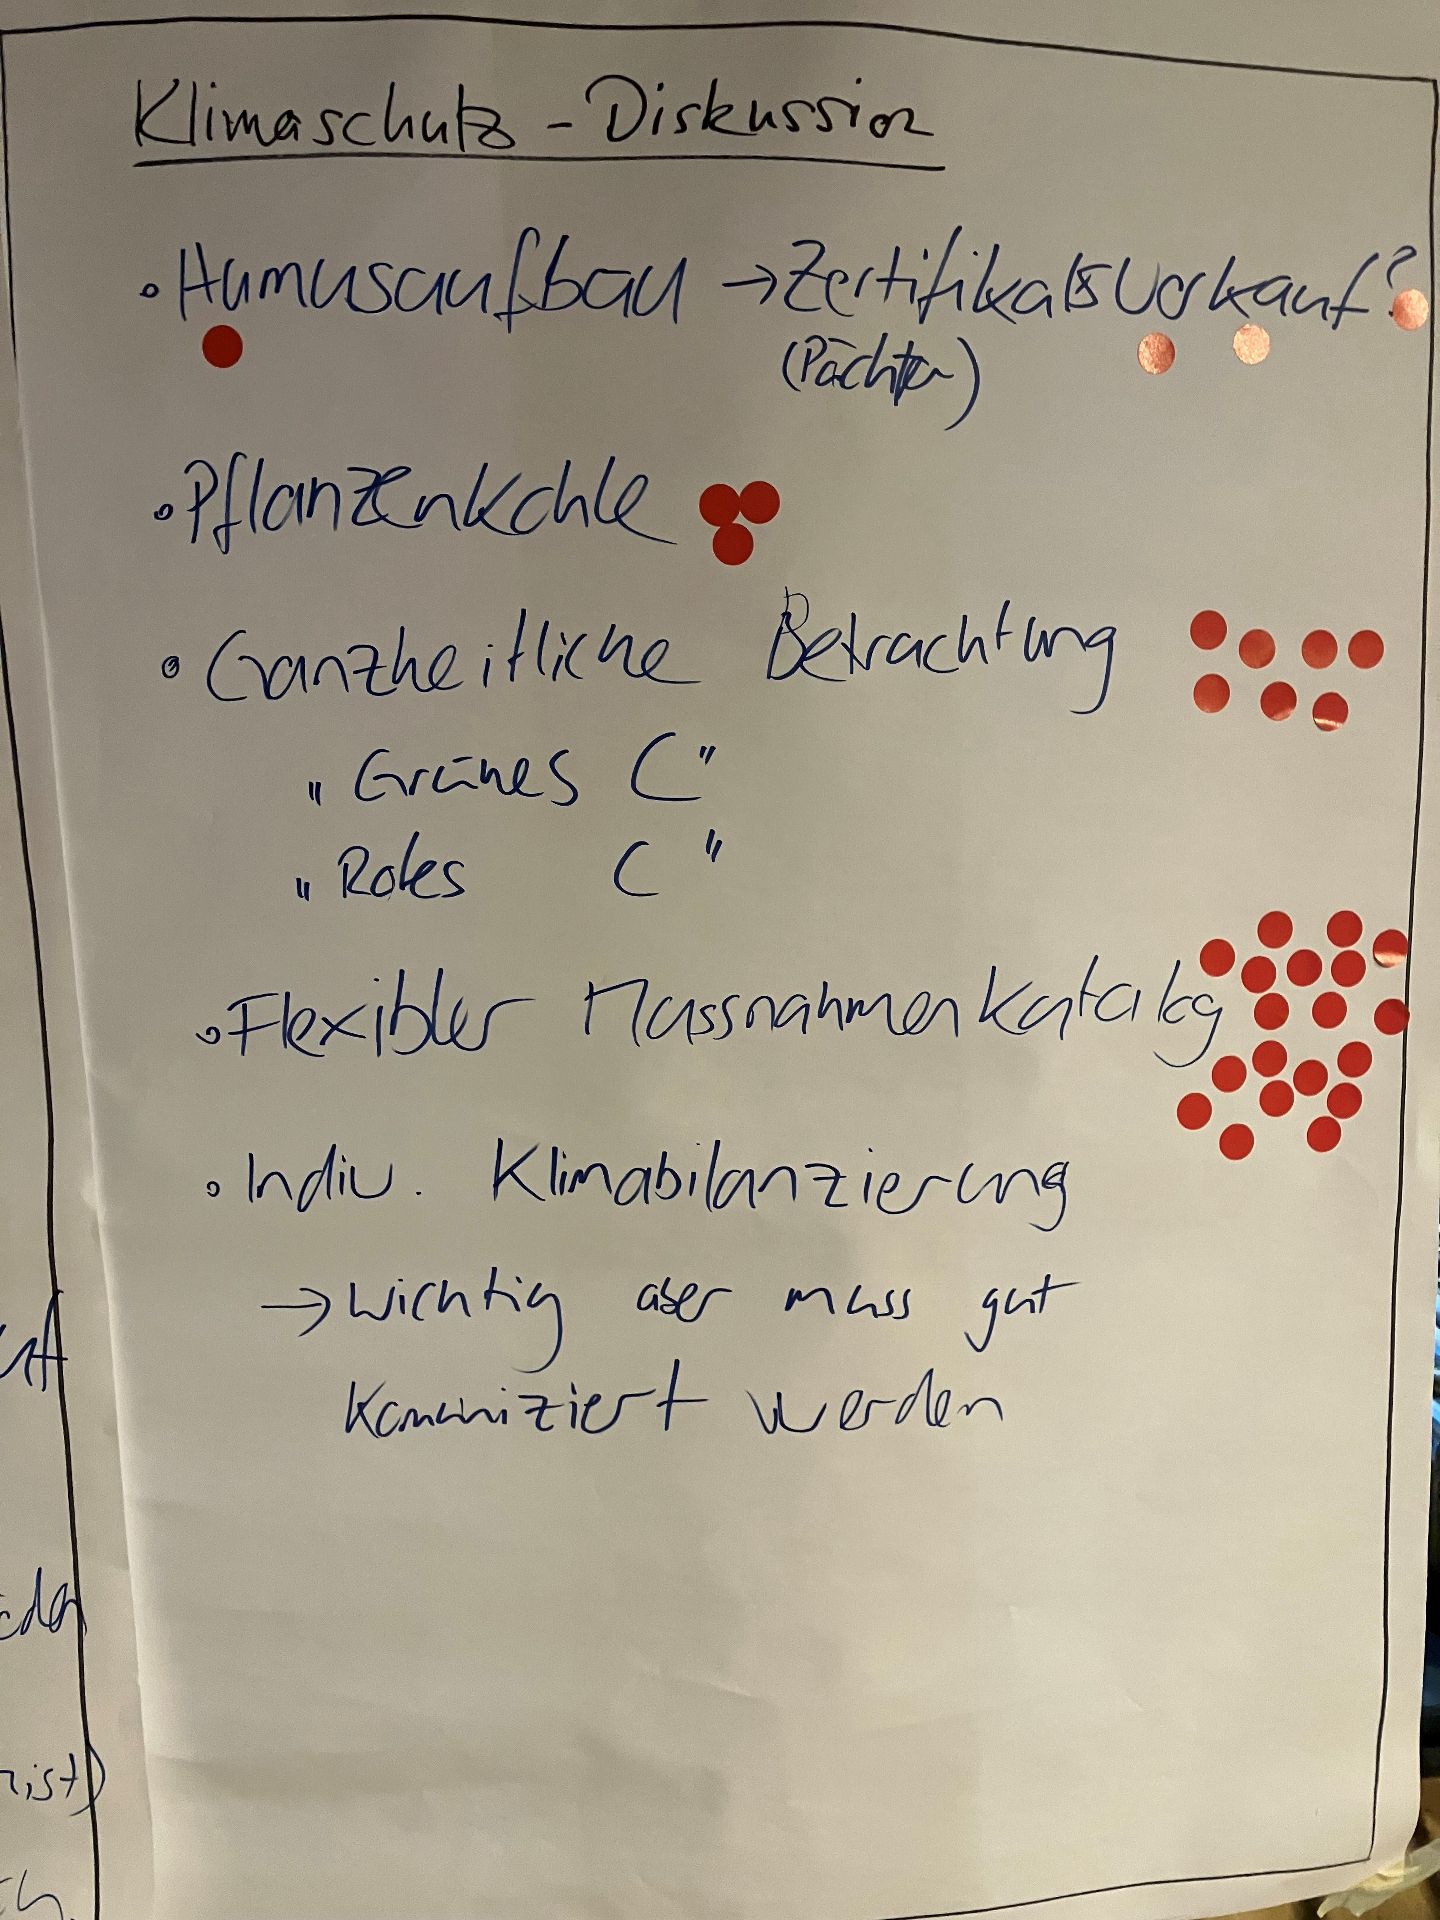 Klimaschutz - Diskussion
• Humusaufbau → Zertifikatsverkauf?
(Pächter)
• Pflanzenkohle
• Ganzheitliche Betrachtung
„Grünes C"
„Rotes C"
• Flexibler Massnahmenkatalog
• Indiv. Klimabilanzierung
→ wichtig aber muss gut
kommuniziert werden